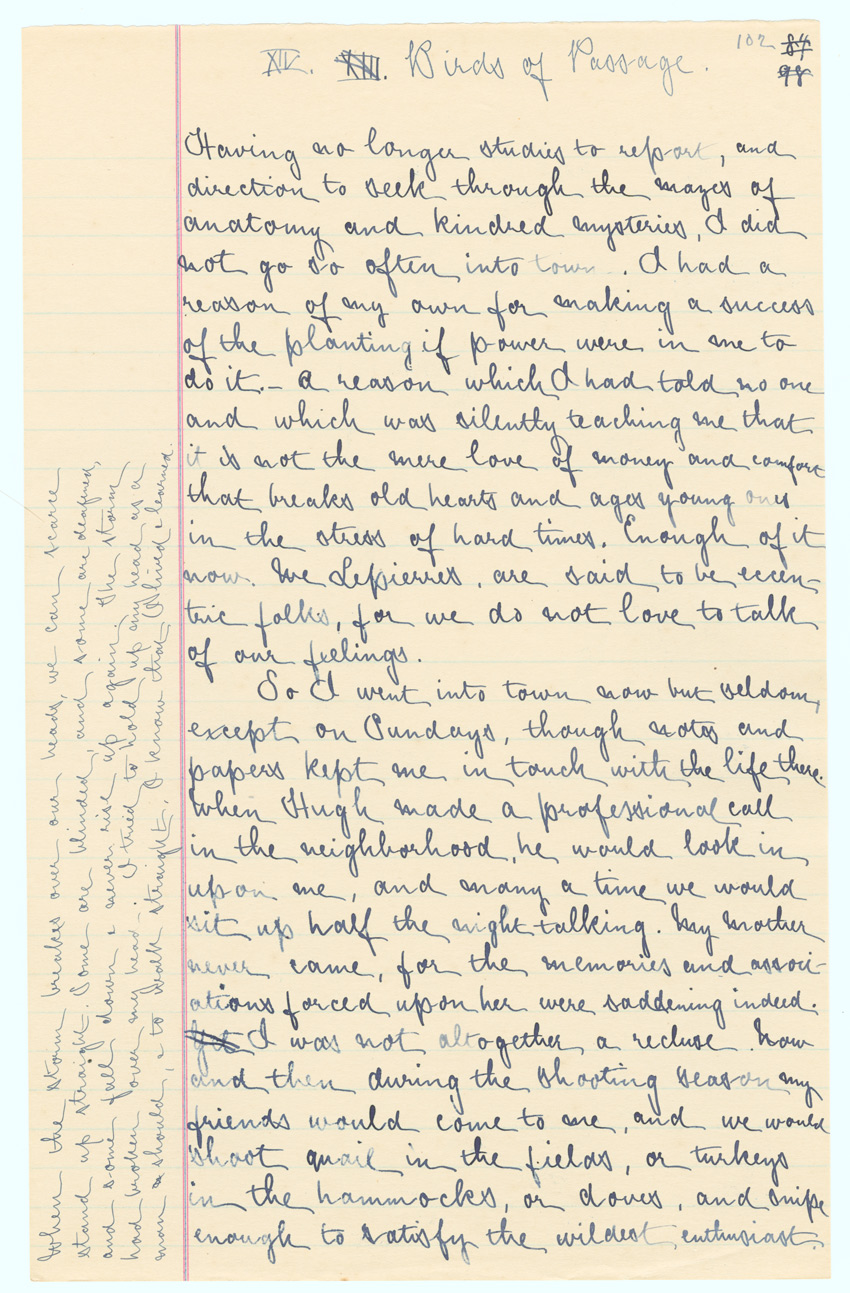 102 84
98
XIV. XIII. Birds of Passage.
Having no longer studies to report, and
direction to seek through the mazes of
anatomy and kindred mysteries, I did
not go so often into town. I had a
reason of my own for making a success
of the planting if power were in me to
do it. – a reason which I had told no one
and which was silently teaching me that
it is not the mere love of money and comfort
that breaks old hearts and ages young ones
in the stress of hard times. Enough of it
now. We LePierres, are said to be eccen-
tric folks, for we do not love to talk
of our feelings.
So I went into town now but seldom,
except on Sundays, though notes and
papers kept me in touch with the life there.
When Hugh made a professional call
in the neighborhood, he would look in
upon me, and many a time we would
sit up half the night talking. My mother
never came, for the memories and associ-
ations forced upon her were saddening indeed.
Yet I was not altogether a recluse. Now
and then during the shooting season my
friends would come to me, and we would
shoot quail in the fields, or turkeys
in the hammocks, or doves, and snipe
enough to satisfy the wildest enthusiast.
When the storm breaks over our heads, we can scarce
stand up straight. Some are blinded, and some are deafened,
and some fall down & never rise up again. The storm
had broken over my head. I tried to hold up my head as a
man should, & to walk straight. I know that I lived & learned.